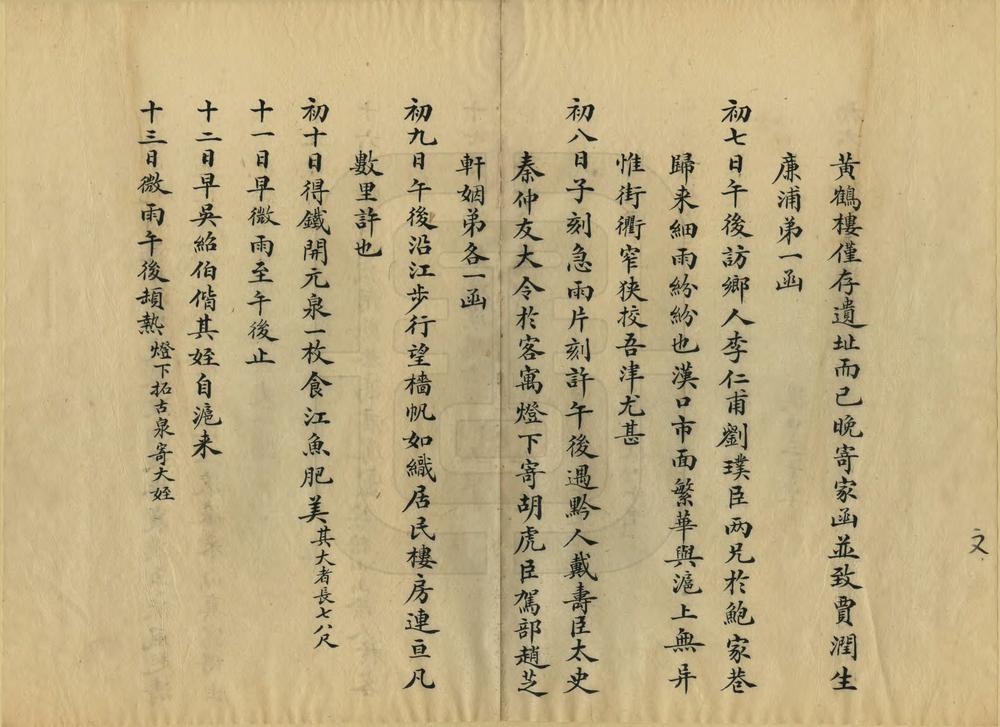 黃鶴樓僅存遺址而已晚寄家函並致賈潤生
廉浦弟一函
初七日午後訪鄉人李仁甫劉璞臣兩兄於鮑家巷
歸来細雨紛紛也漢口市面繁華與滬上無异
惟街衢窄狹挍吾津尤甚
初八日子刻急雨片刻許午後遇黔人戴壽臣太史
秦仲友大令於客寓燈下寄胡虎臣駕部趙芝
軒姻弟各一函
初九日午後沿江步行望檣帆如織居民樓房連亘凡
數里許也
初十日得鐵開元泉一枚食江魚肥美其大者長七八尺
十一日早微雨至午後止
十二日早吳紹伯偕其姪自滬来
十三日微雨午後頗熱燈下拓古泉寄大姪
文